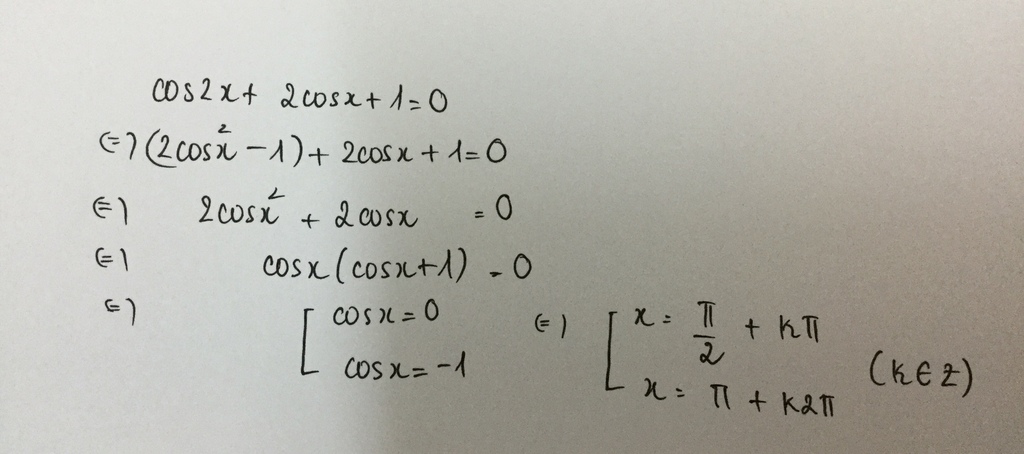 cos2x + 2cosx + 1 = 0
⇔ (2cosx² - 1) + 2cosx + 1 = 0
⇔ 2cosx² + 2cosx = 0
⇔ cosx(cosx+1) = 0
⇔ [ cosx = 0 ⇔ [ x = π/2 + kπ
cosx = -1 x = π + k2π (k∈Z)